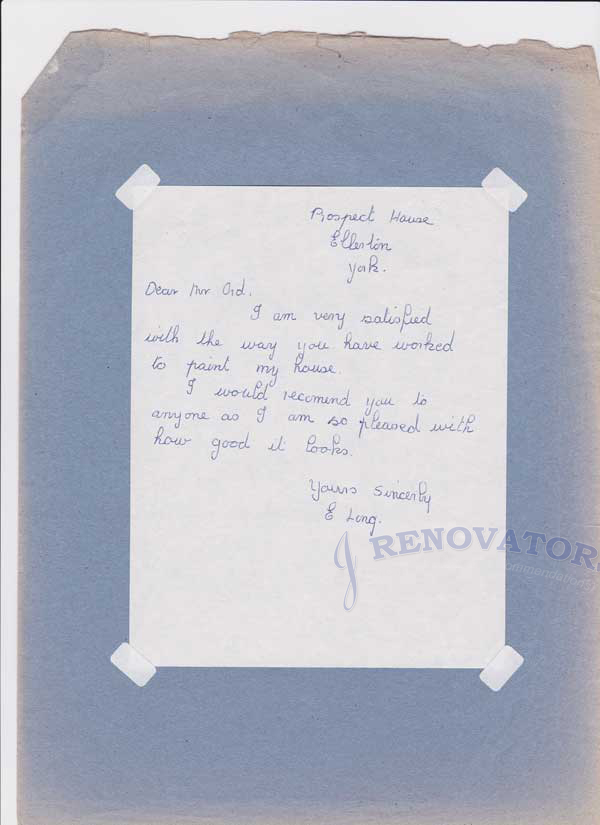 Prospect House
Ellerton
York.
Dear Mr Ord.
I am very satisfied
with the way you have worked
to paint my house.
I would recomend you to
anyone as I am so pleased with
how good it looks.
Yours Sincerly
E Ling.
J RENOVATOR